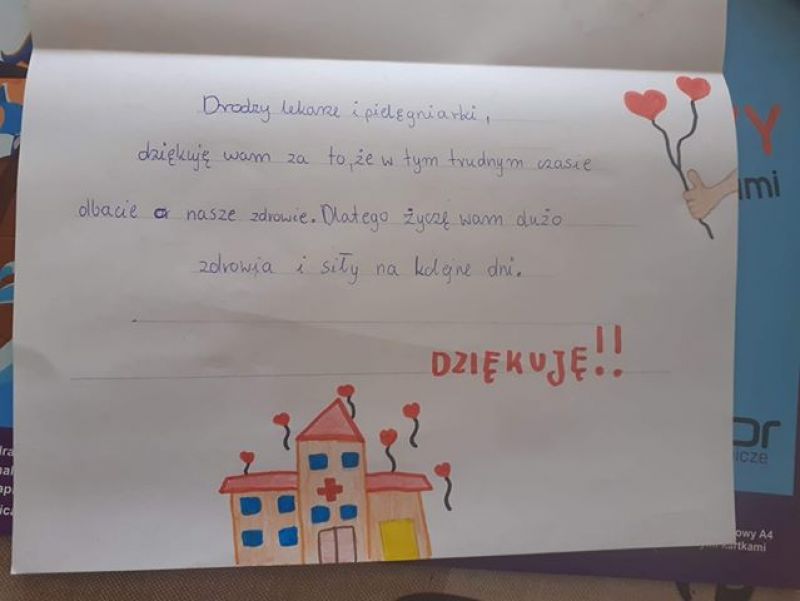 Drodzy lekarze i pielęgniarki,
dziękuję wam za to, że w tym trudnym czasie
dbacie o nasze zdrowie. Dlatego życzę wam dużo
zdrowia i siły na kolejne dni.
DZIĘKUJĘ!!
Y
ami
or
icze
owy A4
kartkami